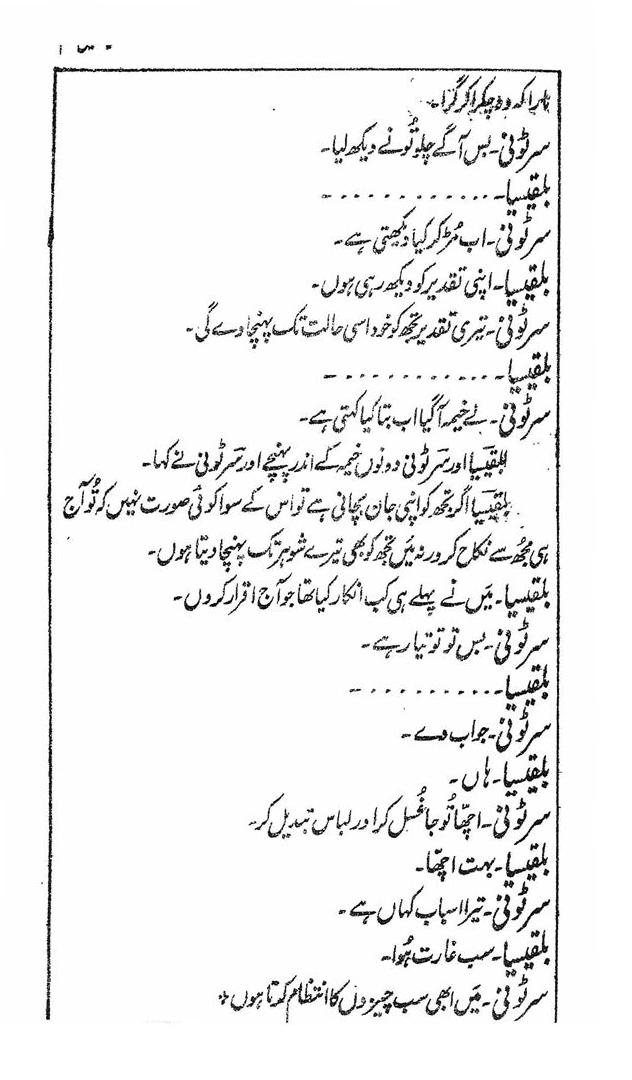 مارا کہ وہ چکرا کر گرا۔
سرٹونی۔ بس آگے چلو تُو نے دیکھ لیا۔
بلقیسیا۔ ............ ۔
سرٹونی۔ اب مُڑ کر کیا دیکھتی ہے۔
بلقیسیا۔ اپنی تقدیر کو دیکھ رہی ہوں۔
سرٹونی۔ تیری تقدیر تجھ کو خود اسی حالت تک پہنچا دے گی۔
بلقیسیا۔ ............ ۔
سرٹونی۔ لے خیمہ آ گیا اب بتا کیا کہتی ہے۔
بلقیسیا اور سرٹونی دونوں خیمہ کے اندر پہنچے اور سرٹونی نے کہا۔
بلقیسیا اگر تجھ کو اپنی جان بچانی ہے تو اس کے سوا کوئی صورت نہیں کہ تُو آج
ہی مجھ سے نکاح کر ورنہ میں تجھ کو بھی تیرے شوہر تک پہنچا دیتا ہوں۔
بلقیسیا۔ میں نے پہلے ہی کب انکار کیا تھا جو آج اقرار کروں۔
سرٹونی۔ بس تو تو تیار ہے۔
بلقیسیا۔ ........... ۔
سرٹونی۔ جواب دے۔
بلقیسیا۔ ہاں۔
سرٹونی۔ اچھا تُو جا غُسل کر اور لباس تبدیل کر۔
بلقیسیا۔ بہت اچھا۔
سرٹونی۔ تیرا اسباب کہاں ہے۔
بلقیسیا۔ سب غارت ہُوا۔
سرٹونی۔ میں ابھی سب چیزوں کا انتظام کرتا ہوں٭